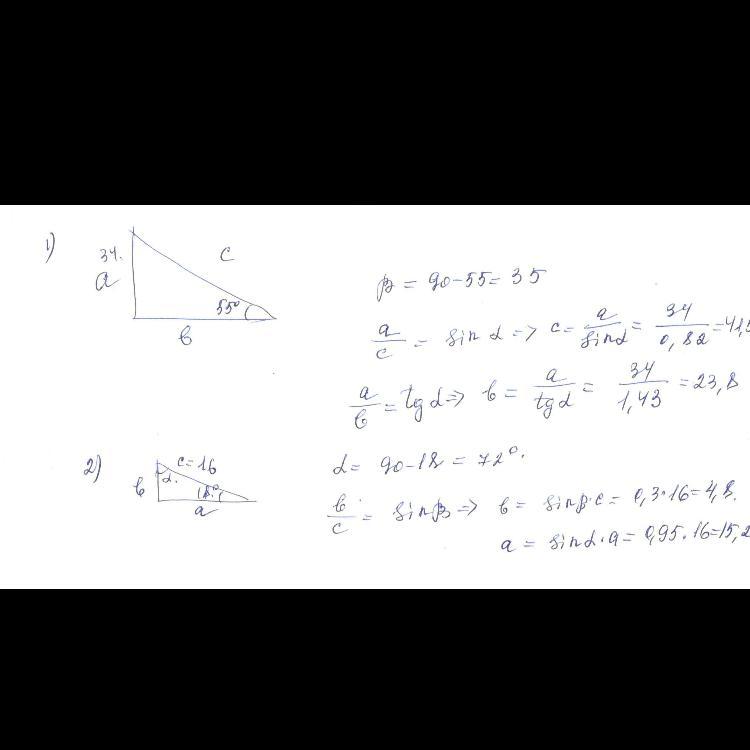 1)
34.
a
c
55°
в
β = 90-55 = 35
a/c = sin α => c = a/sin α = 34/0,82 = 41,5
a/в = tg α => в = a/tg α = 34/1,43 = 23,8
2)
c=16
α.
в
18°
a
α = 90-18 = 72°.
в/c = sin β => в = sin β·c = 0,3·16=4,8.
a = sin α·a = 0,95·16=15,2